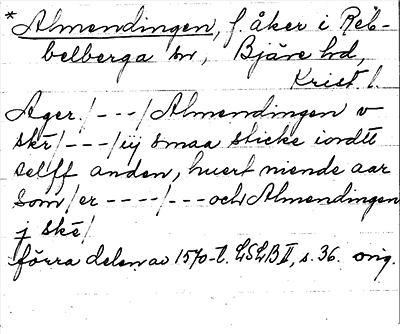 * Almendingen, f. åker i Reb-
belberga sn, Bjäre hd,
Krist. l.
Ager /---/ Almendingen v
skr /---/ ij smaa sticke iordtt
selff anden, huert niende aar
som /er ----/---och Almendingen
j ske/
förra delen av 1570-t. LSLB II, s. 36. orig.